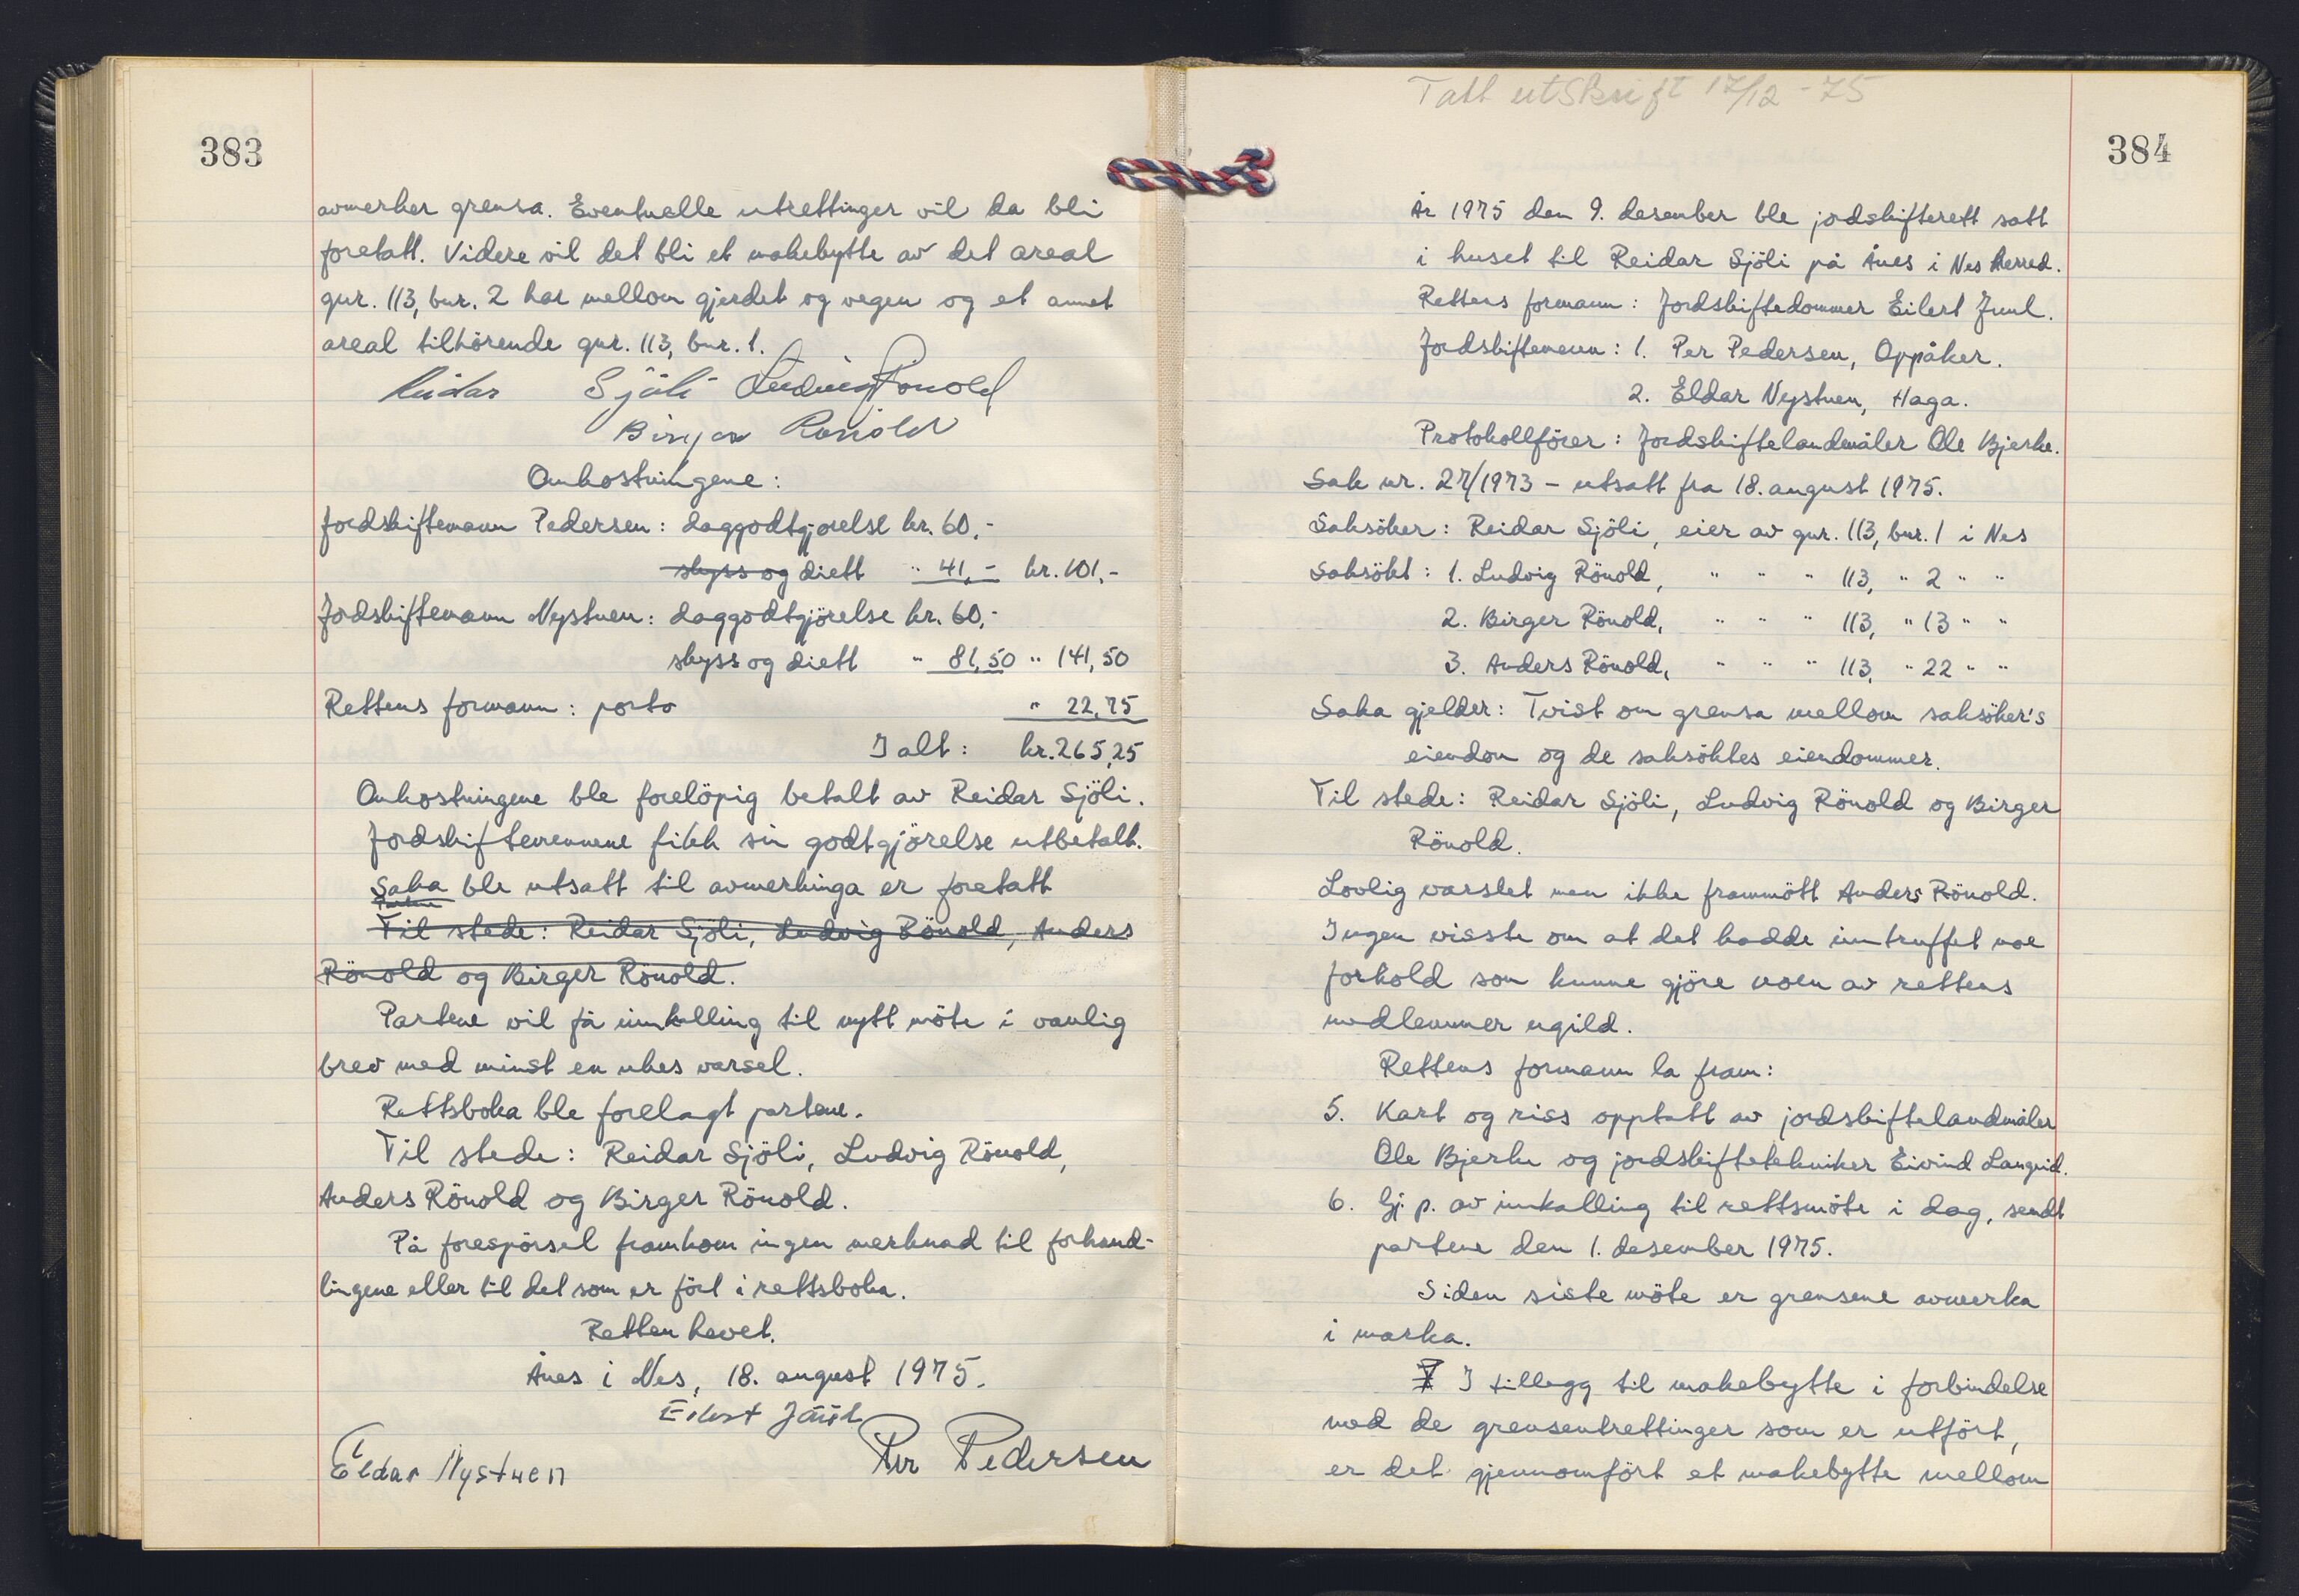 383
avmerker grensa. Eventuelle utrettinger vil da bli
foretatt. Videre vil det bli et makebytte av det areal
gnr. 113, bnr. 2 har mellom gjerdet og vegen og et annet
areal tilhörende gnr. 113, bnr. 1.
Reidar Sjöli Ludvig Rönold
Birger Rönold
Omkostningene:
Jordskiftemann Pedersen: daggodtgjörelse kr. 60,-
skyss og diett " 41,- kr. 101,-
Jordskiftemann Nystuen: daggodtgjörelse kr. 60,-
skyss og diett " 81,50 " 141,50
Rettens formann: porto " 22,75
I alt: kr. 265,25
Omkostningene ble forelöpig betalt av Reidar Sjöli.
Jordskiftemennene fikk sin godtgjörelse utbetalt.
Saka ble utsatt til avmerkinga er foretatt
Til stede: Reidar Sjöli, Ludvig Rönold, Anders
Rönold og Birger Rönold.
Partene vil få innkalling til nytt möte i vanlig
brev med minst en ukes varsel.
Rettsboka ble forelagt partene.
Til stede: Reidar Sjöli, Ludvig Rönold,
Anders Rönold og Birger Rönold.
På forespörsel framkom ingen merknad til forhand-
lingene eller til det som er fört i rettsboka.
Retten hevet.
Ånes i Nes, 18. august 1975.
Eilert Juul
Eldar Nystuen Per Pedersen
Tatt utskrift 17/12-75
384
År 1975 den 9. desember ble jordskifterett satt
i huset til Reidar Sjöli på Ånes i Nes herred.
Rettens formann: Jordskiftedommer Eilert Juul.
Jordskiftemenn: 1. Per Pedersen, Oppåker.
2. Eldar Nystuen, Haga.
Protokollförer: Jordskiftelandmåler Ole Bjerke.
Sak nr. 27/1973 - utsatt fra 18. august 1975.
Saksöker: Reidar Sjöli, eier av gnr. 113, bnr. 1 i Nes
Saksökt: 1. Ludvig Rönold, " " " 113, " 2 " "
2. Birger Rönold, " " " 113, " 13 " "
3. Anders Rönold, " " " 113, " 22 " "
Saka gjelder: Tvist om grensa mellom saksöker's
eiendom og de saksöktes eiendommer.
Til stede: Reidar Sjöli, Ludvig Rönold og Birger
Rönold.
Lovlig varslet men ikke frammött Anders Rönold.
Ingen visste om at det hadde inntruffet noe
forhold som kunne gjöre noen av rettens
medlemmer ugild.
Rettens formann la fram:
5. Kart og riss opptatt av jordskiftelandmåler
Ole Bjerke og jordskiftetekniker Eivind Langrid.
6. Gj. p. av innkalling til rettsmöte i dag, sendt
partene den 1. desember 1975.
Siden siste möte er grensene avmerka
i marka.
I tillegg til makebytte i forbindelse
med de grenseutrettinger som er utfört,
er det gjennomfört et makebytte mellom